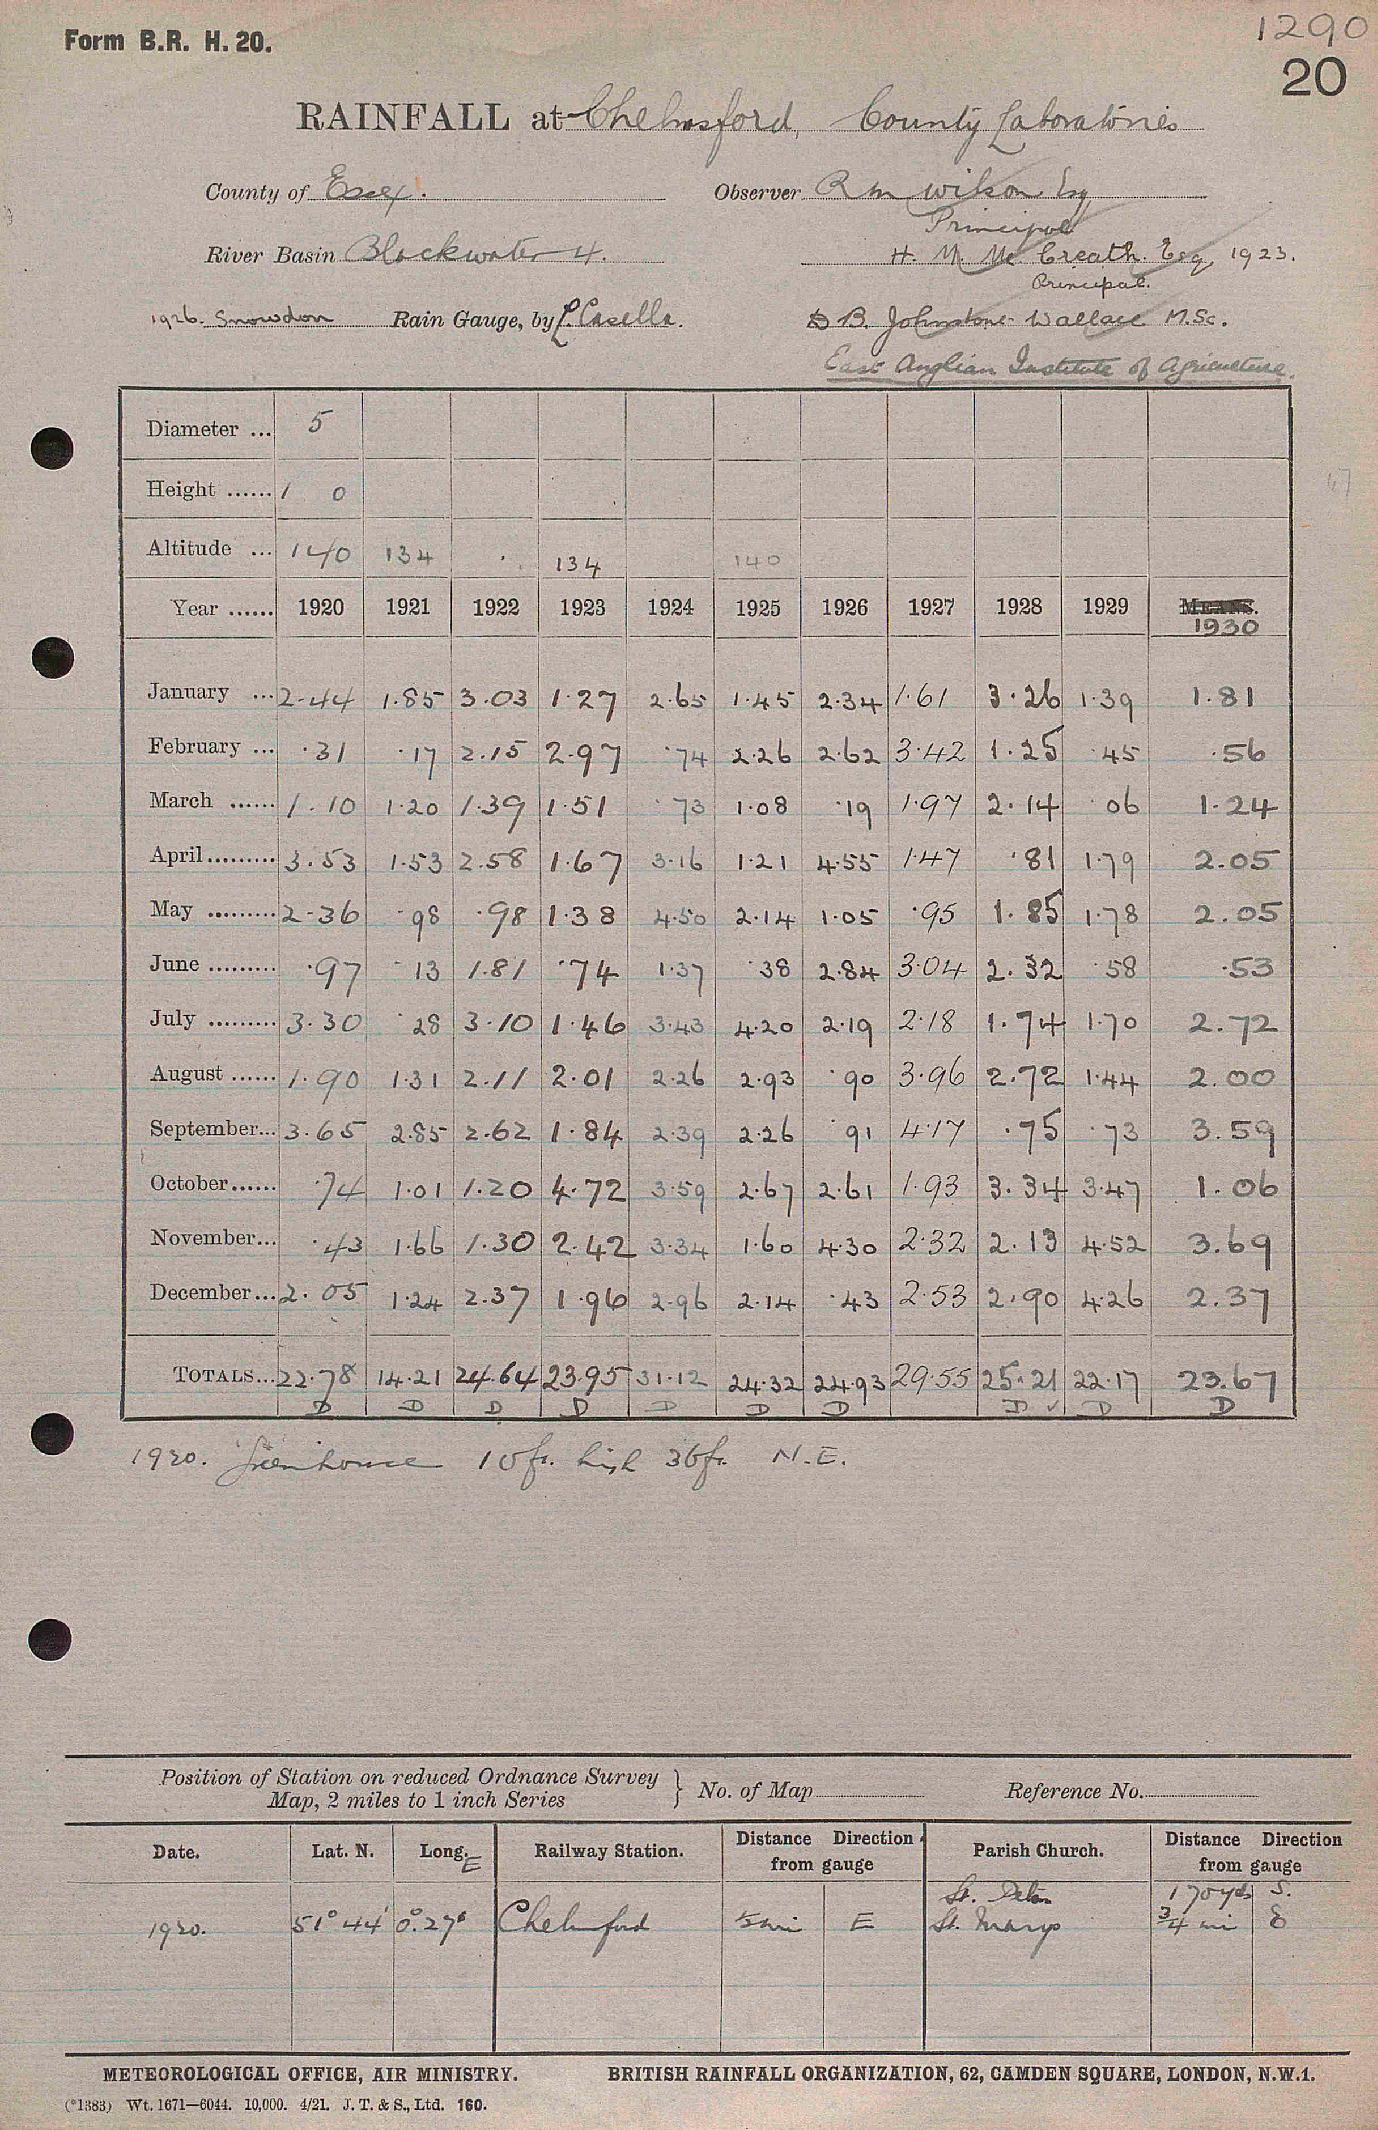 1290
Form B.R. H. 20.
20
RAINFALL at Chelmsford, County Laboratories
County of Essex. Observer R M Wilson Esq
Principal
River Basin Blackwater 4. H. M. Mc Creath. Esq, 1923.
Principal.
1926. Snowdon Rain Gauge, by L. Casella. D B. Johnstone-Wallace M.Sc.
East Anglian Institute of Agriculture.
Diameter ... 5
Height ...... 1 0
Altitude ... 140 134 134 140
Year ...... 1920 1921 1922 1923 1924 1925 1926 1927 1928 1929 MEANS.
1930
January ... 2.44 1.85 3.03 1.27 2.65 1.45 2.34 1.61 3.26 1.39 1.81
February ... .31 .17 2.15 2.97 .74 2.26 2.62 3.42 1.25 .45 .56
March ...... 1.10 1.20 1.39 1.51 .73 1.08 .19 1.97 2.14 .06 1.24
April ......... 3.53 1.53 2.58 1.67 3.16 1.21 4.55 1.47 .81 1.79 2.05
May ......... 2.36 .98 .98 1.38 4.50 2.14 1.05 .95 1.85 1.78 2.05
June ......... .97 .13 1.81 .74 1.37 .38 2.84 3.04 2.32 .58 .53
July ......... 3.30 .28 3.10 1.46 3.43 4.20 2.19 2.18 1.74 1.70 2.72
August ...... 1.90 1.31 2.11 2.01 2.26 2.93 .90 3.96 2.72 1.44 2.00
September... 3.65 2.85 2.62 1.84 2.39 2.26 .91 4.17 .75 .73 3.59
October...... .74 1.01 1.20 4.72 3.59 2.67 2.61 1.93 3.34 3.47 1.06
November... .43 1.66 1.30 2.42 3.34 1.60 4.30 2.32 2.13 4.52 3.69
December... 2.05 1.24 2.37 1.96 2.96 2.14 .43 2.53 2.90 4.26 2.37
TOTALS... 22.78 14.21 24.64 23.95 31.12 24.32 24.93 29.55 25.21 22.17 23.67
D D D D D D D D ✓ D D
1920. Greenhouse 10ft. high 36ft. N.E.
Position of Station on reduced Ordnance Survey
Map, 2 miles to 1 inch Series } No. of Map Reference No.
Date. Lat. N. Long. E Railway Station. Distance Direction from gauge Parish Church. Distance Direction from gauge
St. Peters 170 yds S.
1920. 51° 44' 0° 27' Chelmsford ½ mi E St. Marys ¾ mi E
METEOROLOGICAL OFFICE, AIR MINISTRY. BRITISH RAINFALL ORGANIZATION, 62, CAMDEN SQUARE, LONDON, N.W.1.
(*1383) Wt. 1671—6044. 10,000. 4/21. J. T. & S., Ltd. 160.